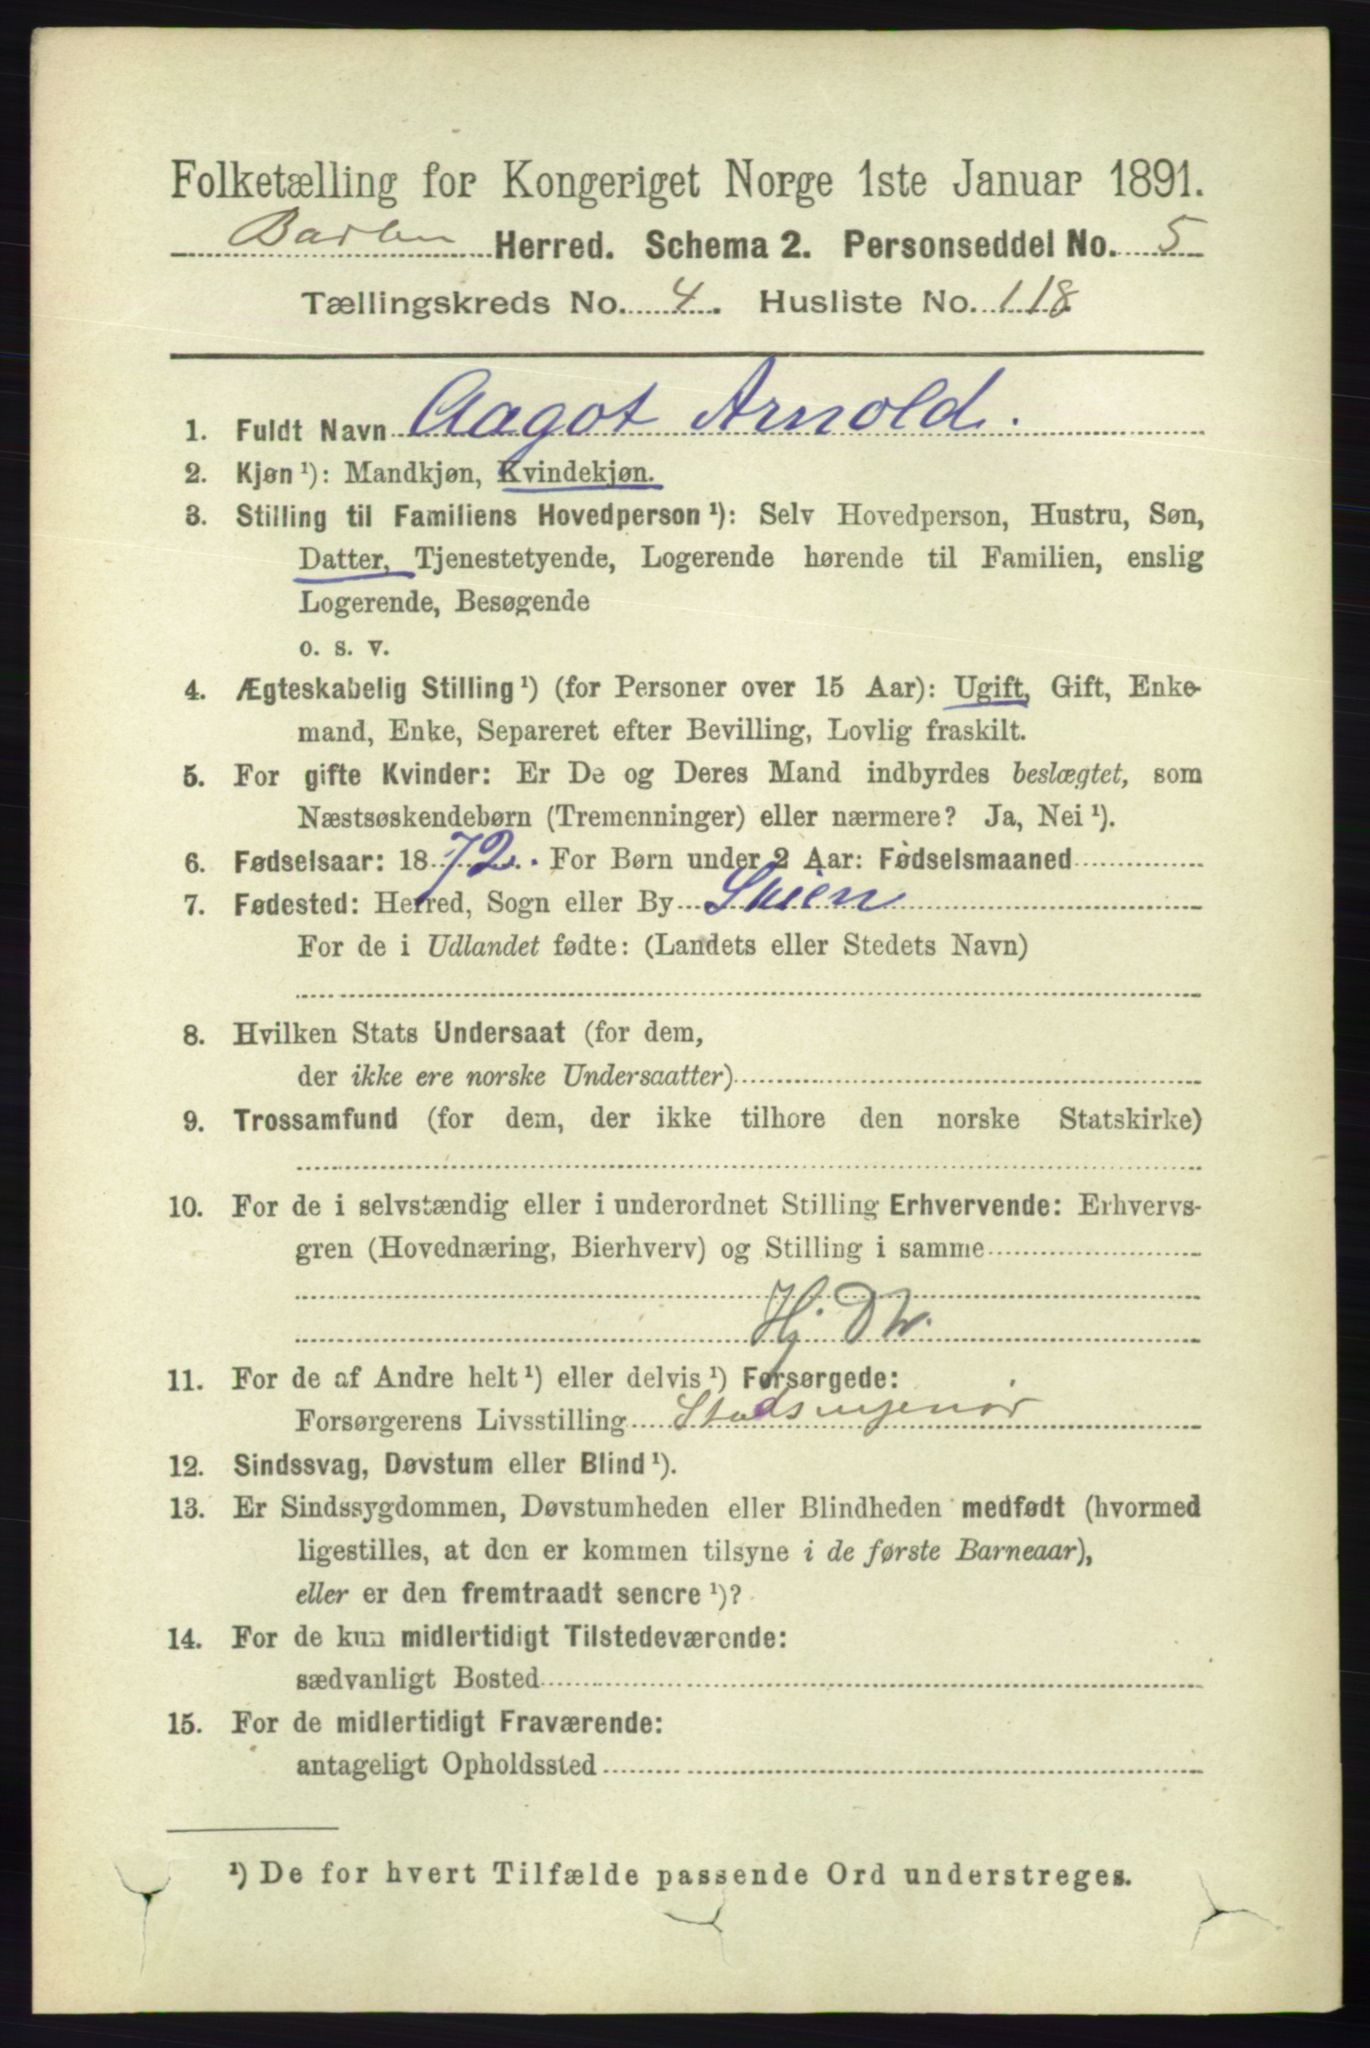 Folketælling for Kongeriget Norge 1ste Januar 1891.
Herred. Schema 2. Personseddel No. 5
Tællingskreds No. 4. Husliste No. 118
1. Fuldt Navn Aagot Arnold.
2. Kjøn ¹): Mandkjøn, Kvindekjøn.
3. Stilling til Familiens Hovedperson ¹): Selv Hovedperson, Hustru, Søn,
Datter, Tjenestetyende, Logerende hørende til Familien, enslig
Logerende, Besøgende
o. s. v.
4. Ægteskabelig Stilling ¹) (for Personer over 15 Aar): Ugift, Gift, Enke-
mand, Enke, Separeret efter Bevilling, Lovlig fraskilt.
5. For gifte Kvinder: Er De og Deres Mand indbyrdes beslægtet, som
Næstsøskendebørn (Tremenninger) eller nærmere? Ja, Nei ¹).
6. Fødselsaar: 1872. For Børn under 2 Aar: Fødselsmaaned
7. Fødested: Herred, Sogn eller By Skien
For de i Udlandet fødte: (Landets eller Stedets Navn)
8. Hvilken Stats Undersaat (for dem,
der ikke ere norske Undersaatter)
9. Trossamfund (for dem, der ikke tilhore den norske Statskirke)
10. For de i selvstændig eller i underordnet Stilling Erhvervende: Erhvervs-
gren (Hovednæring, Bierhverv) og Stilling i samme
Hj
11. For de af Andre helt ¹) eller delvis ¹) Forsørgede:
Forsørgerens Livsstilling Stadsingeniør
12. Sindssvag, Døvstum eller Blind ¹).
13. Er Sindssygdommen, Døvstumheden eller Blindheden medfødt (hvormed
ligestilles, at den er kommen tilsyne i de første Barneaar),
eller er den fremtraadt senere ¹)?
14. For de kun midlertidigt Tilstedeværende:
sædvanligt Bosted
15. For de midlertidigt Fraværende:
antageligt Opholdssted
¹) De for hvert Tilfælde passende Ord understreges.